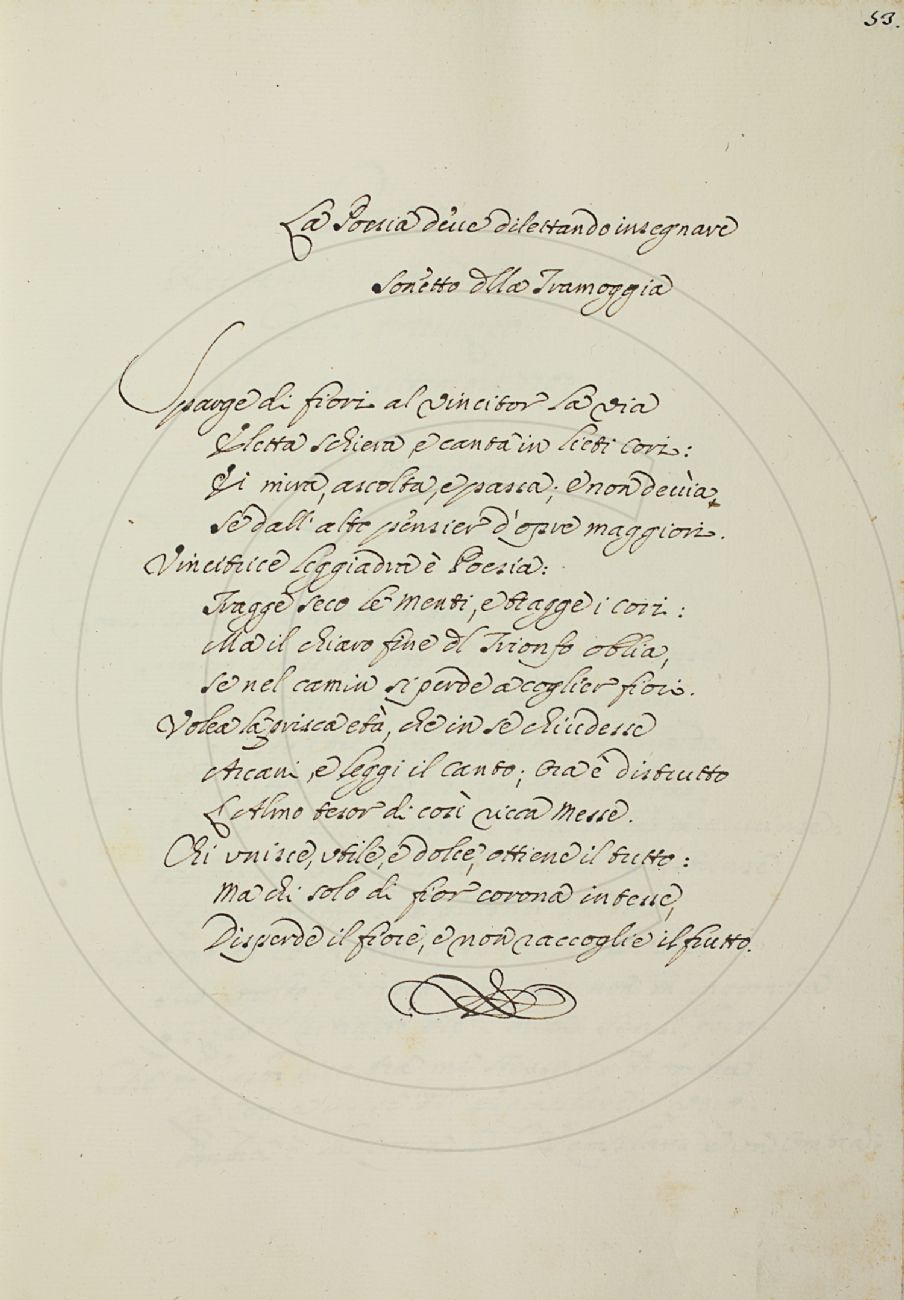 53.
La Poesia deue dilettando insegnare
Sonetto dlla Tramoggia
Sparge di fiori al vincitor la via
Eletta schiera, e canta in lieti cori:
Ei mira, ascolta, e passa; e non decùia,
Se dall' alto pensier d'opre maggiori.
Vincitrice leggiadra è Poesia:
Tragge seco le menti, e tragge i cori:
Ma il chiaro fine dl Trionfo oblia,
se nel camin si perde a coglier fiori.
Volea la prisca età, che in se chiudesse
Arcani, e leggi il canto; Ora è distrutto
L'Almo tesor di così ricca Messe.
Chi vnisce, vtile, e dolce, ottiene il tutto:
Ma chi solo di fior corona intesse,
Disperde il fiore, e non raccoglie il frutto.